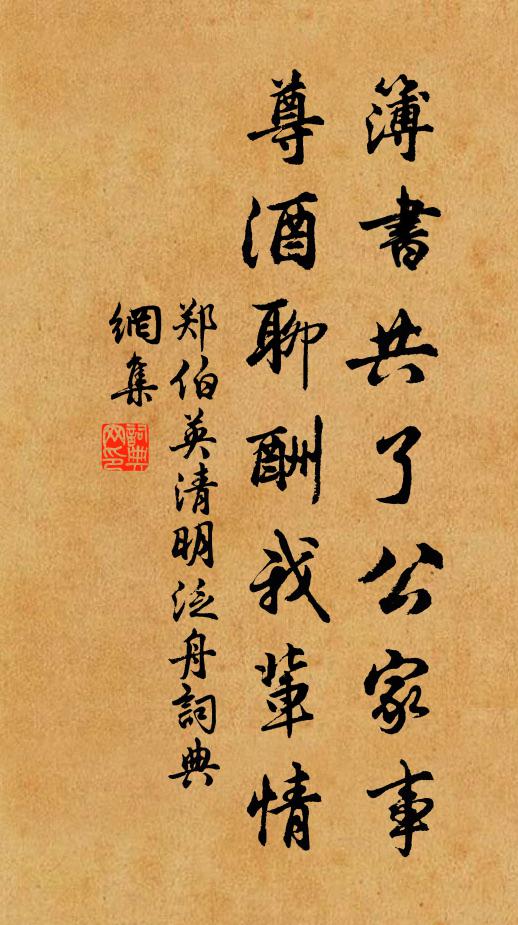 簿書共了公家事
尊酒聊酬我輩情
郑伯英清明泛舟詞典
網集
詞典
网印